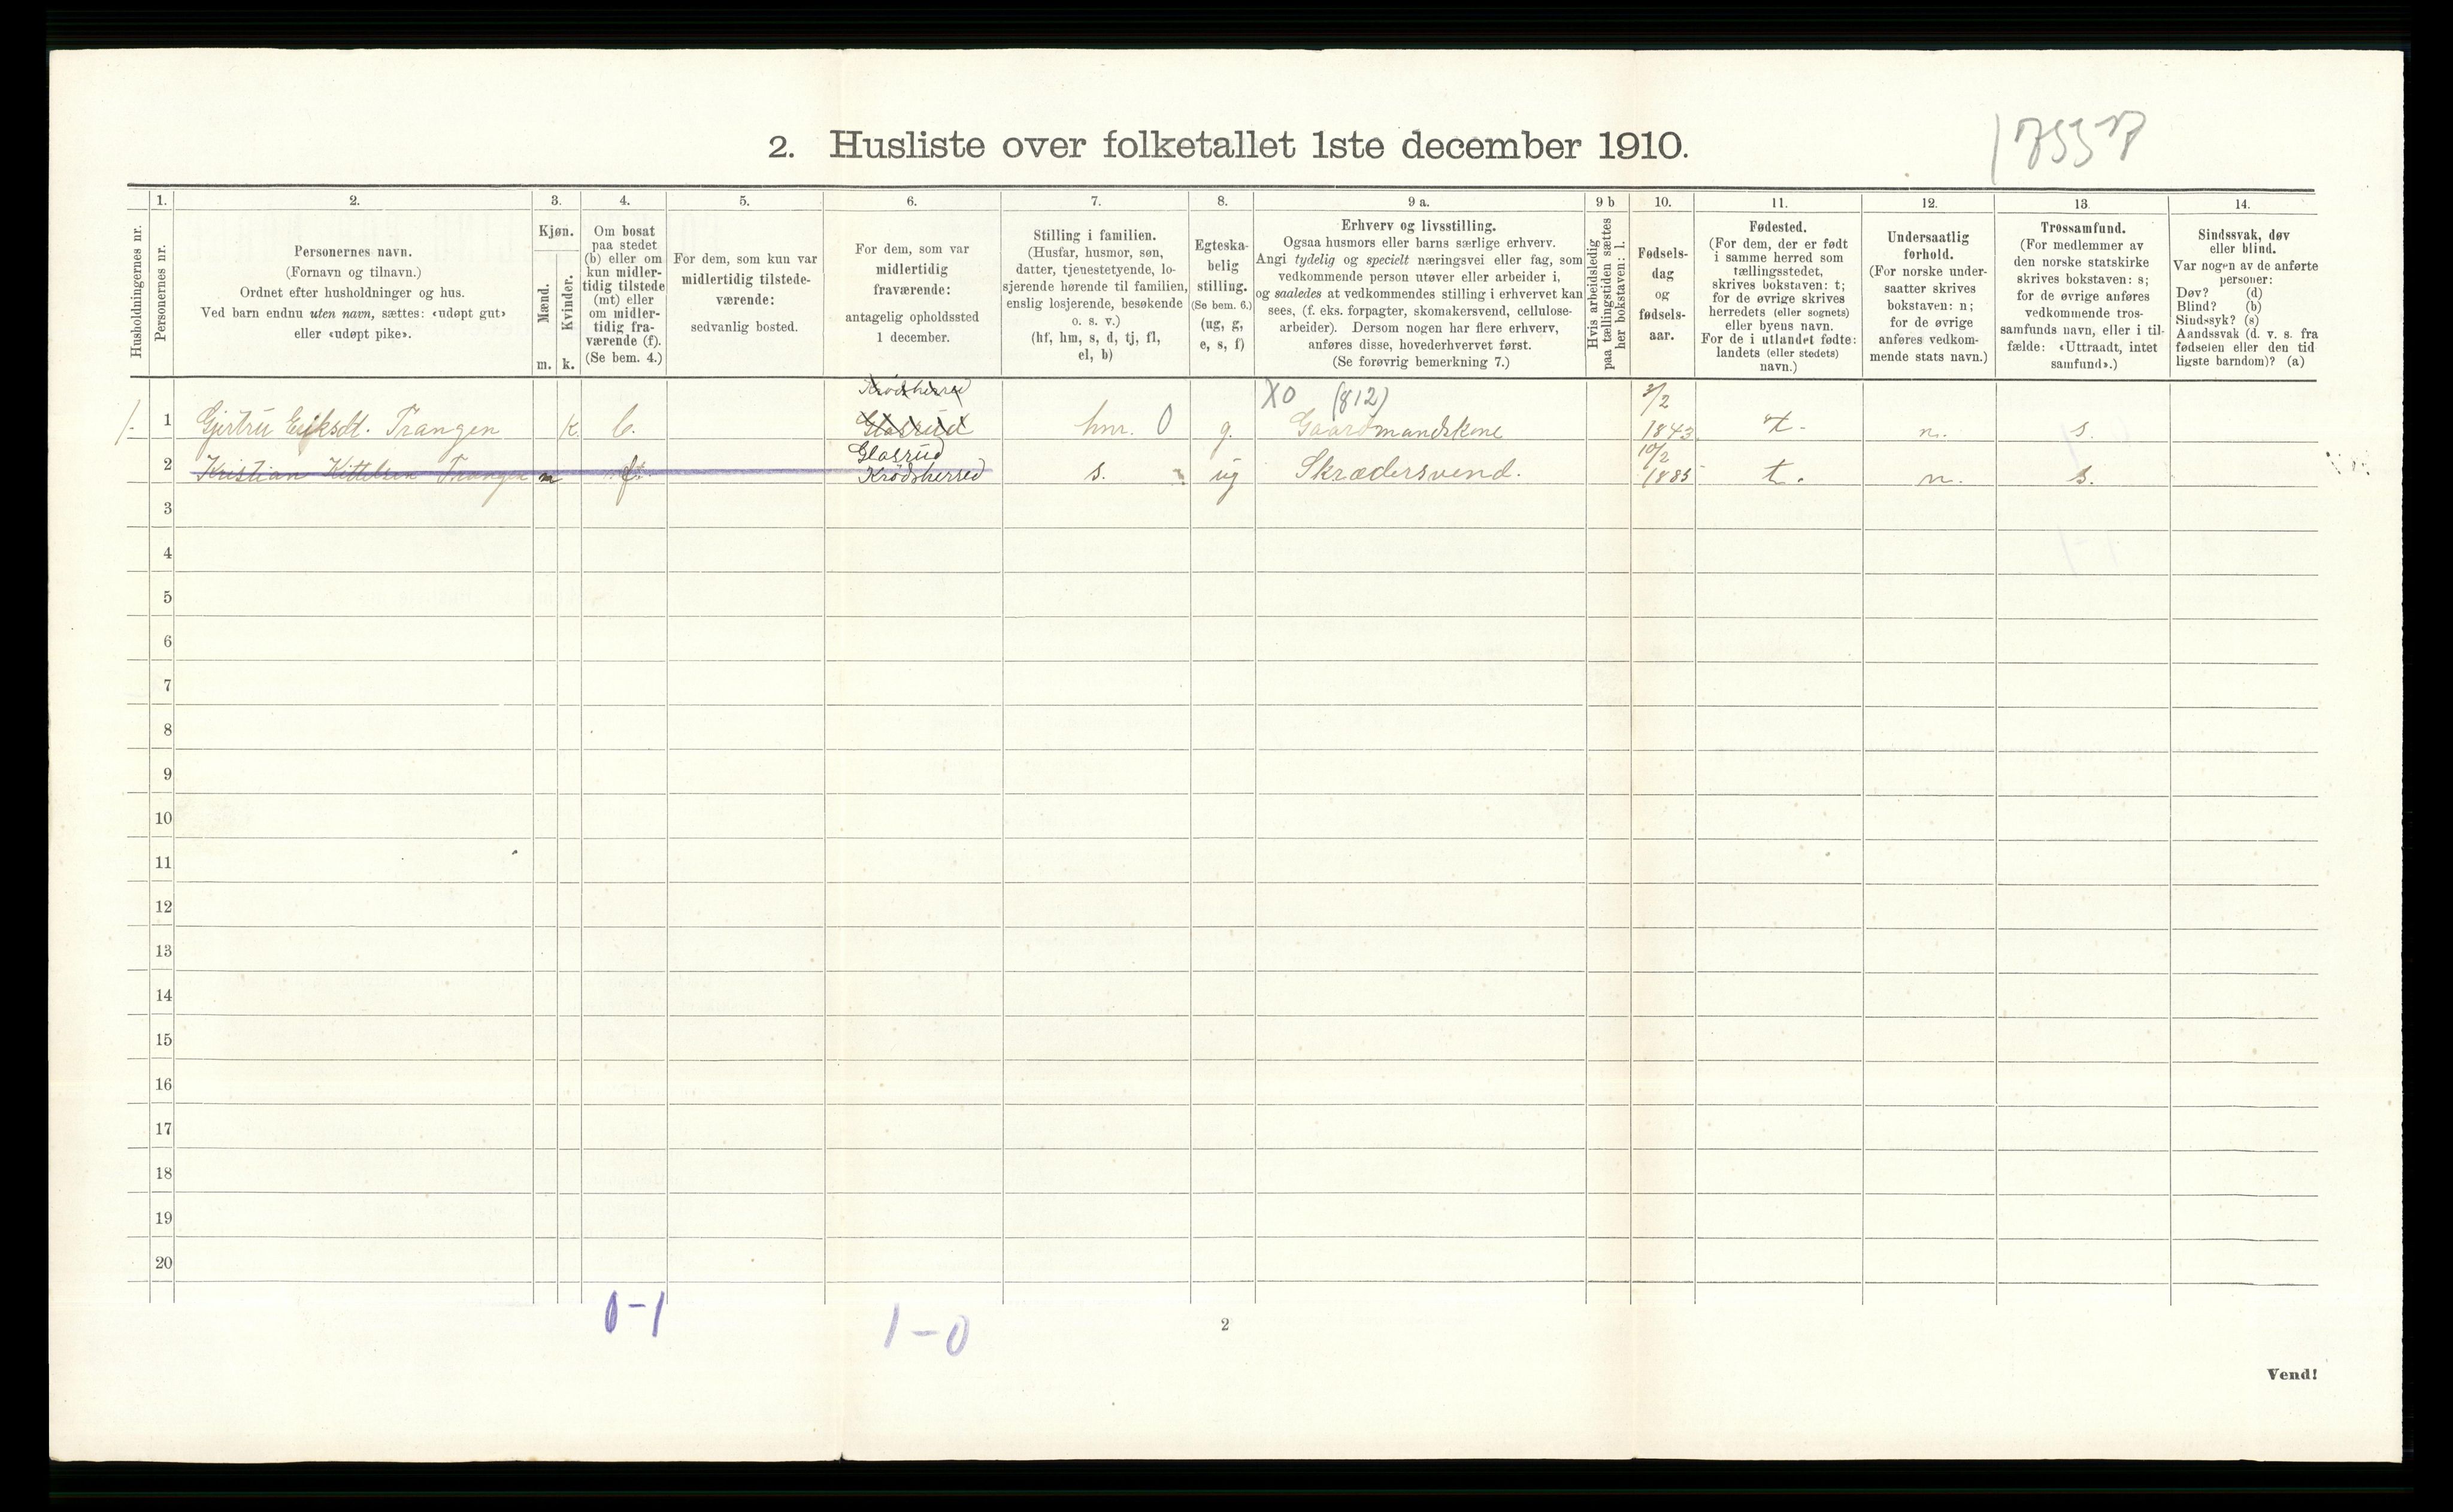 2. Husliste over folketallet 1ste december 1910.
1. 2. 3. 4. 5. 6. 7. 8. 9 a. 9 b 10. 11. 12. 13. 14.
Husholdningernes nr.
Personernes nr.
Personernes navn.
(Fornavn og tilnavn.)
Ordnet efter husholdninger og hus.
Ved barn endnu uten navn, sættes: «udøpt gut»
eller «udøpt pike».
Kjøn.
Mænd.
Kvinder.
m. k.
Om bosat
paa stedet
(b) eller om
kun midler-
tidig tilstede
(mt) eller
om midler-
tidig fra-
værende (f).
(Se bem. 4.)
For dem, som kun var
midlertidig tilstede-
værende:
sedvanlig bosted.
For dem, som var
midlertidig
fraværende:
antagelig opholdssted
1 december.
Stilling i familien.
(Husfar, husmor, søn,
datter, tjenestetyende, lo-
sjerende hørende til familien,
enslig losjerende, besøkende
o. s. v.)
(hf, hm, s, d, tj, fl,
el, b)
Egteska-
belig
stilling.
(Se bem. 6.)
(ug, g,
e, s, f)
Erhverv og livsstilling.
Ogsaa husmors eller barns særlige erhverv.
Angi tydelig og specielt næringsvei eller fag, som
vedkommende person utøver eller arbeider i,
og saaledes at vedkommendes stilling i erhvervet kan
sees, (f. eks. forpagter, skomakersvend, cellulose-
arbeider). Dersom nogen har flere erhverv,
anføres disse, hovederhvervet først.
(Se forøvrig bemerkning 7.)
Hvis arbeidsledig
paa tællingstiden sættes
her bokstaven: l.
Fødsels-
dag
og
fødsels-
aar.
Fødested.
(For dem, der er født
i samme herred som
tællingsstedet,
skrives bokstaven: t;
for de øvrige skrives
herredets (eller sognets)
eller byens navn.
For de i utlandet fødte:
landets (eller stedets)
navn.)
Undersaatlig
forhold.
(For norske under-
saatter skrives
bokstaven: n;
for de øvrige
anføres vedkom-
mende stats navn.)
Trossamfund.
(For medlemmer av
den norske statskirke
skrives bokstaven: s;
for de øvrige anføres
vedkommende tros-
samfunds navn, eller i til-
fælde: «Uttraadt, intet
samfund».)
Sindssvak, døv
eller blind.
Var nogen av de anførte
personer:
Døv? (d)
Blind? (b)
Sindssyk? (s)
Aandssvak (d. v. s. fra
fødselen eller den tid
ligste barndom)? (a)
Krødsherred X0 (812) 3/2
1. 1 Gjertru Eriksdt. Trangen k b. Glasrud hm. 0 g. Gaardmandskone 1843 t. n. s.
Glasrud 10/2
2 Kristian Kittelsen Trangen m f. Krødsherred s. ug Skrædersvend. 1885 t. n. s.
3
4
5
6
7
8
9
10
11
12
13
14
15
16
17
18
19
20
0-1 1-0
2
Vend!